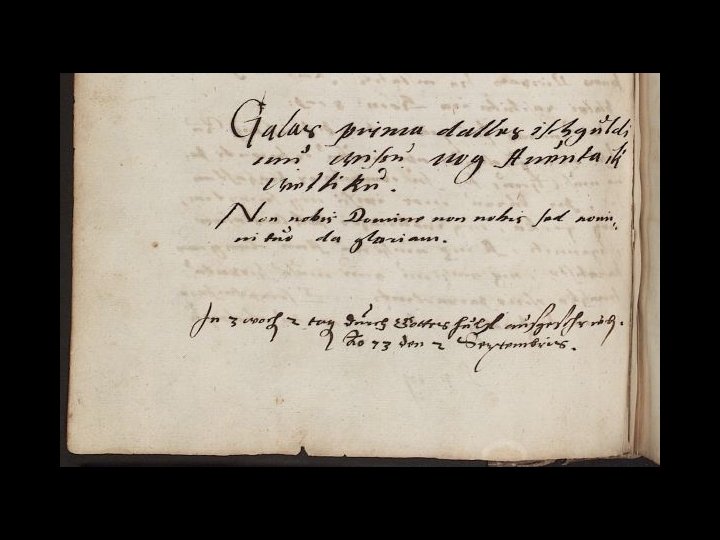 Galas prima dallus isthgũldi
unũ wisen wog Auẽnta iß
wieltikũ.
Non nobis Domine non nobis sed nomi-
ni tuo da gloriam.
In 3 woch 2 tag durch Gottes hülf ausgeschrieb.
Ao 73 den 2 Septembris.